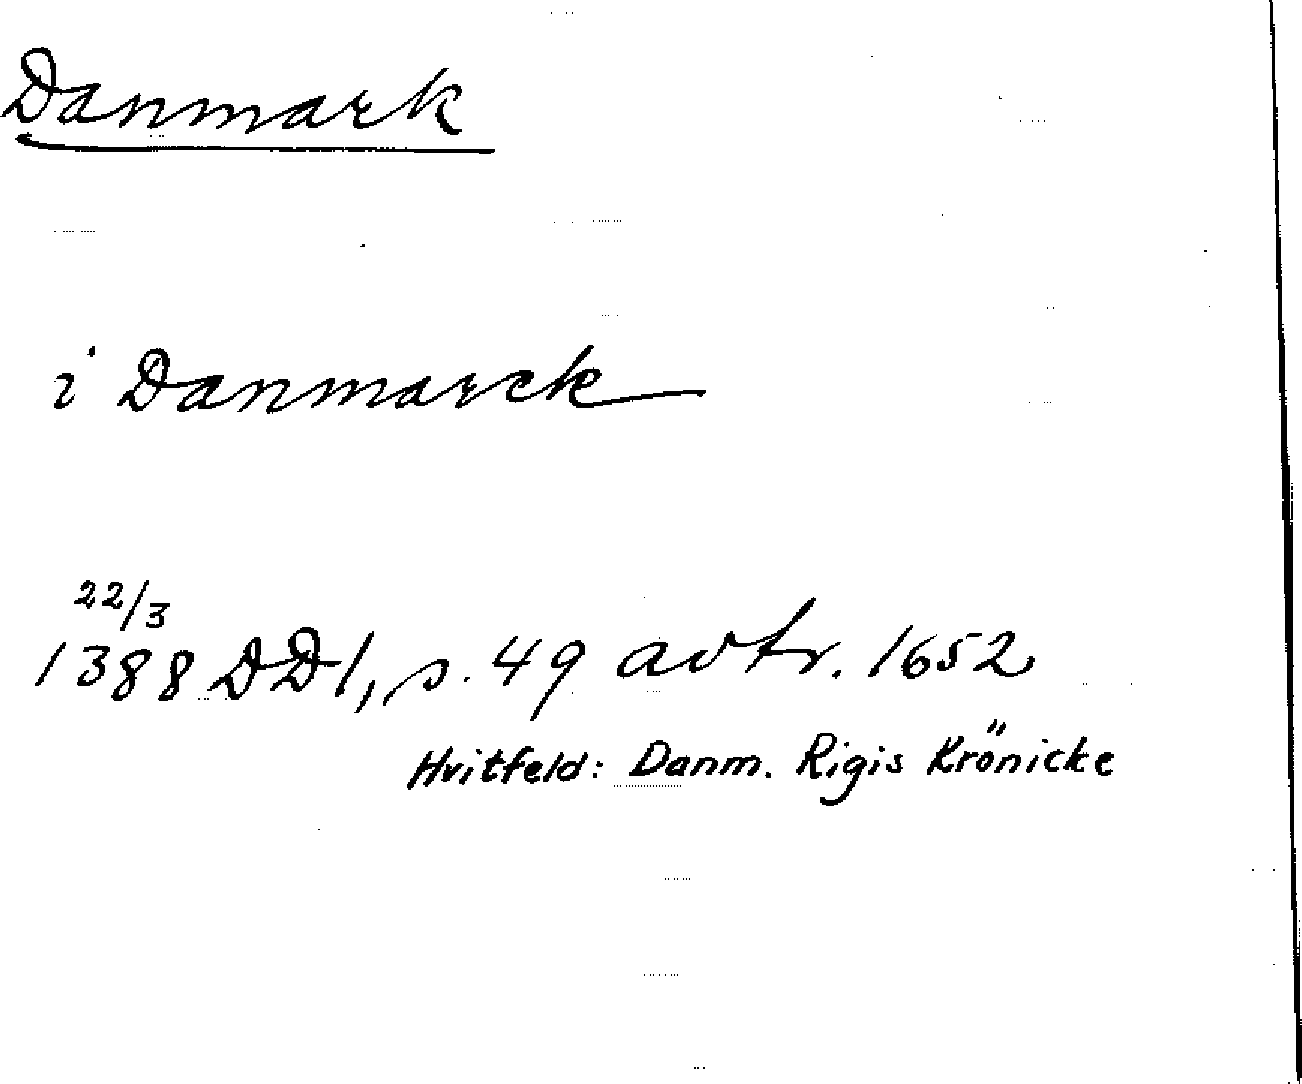 Danmark
i Danmarck
22/3
1388 DD1, s. 49 avtr. 1652
Hvitfeld: Danm. Rigis Krönicke